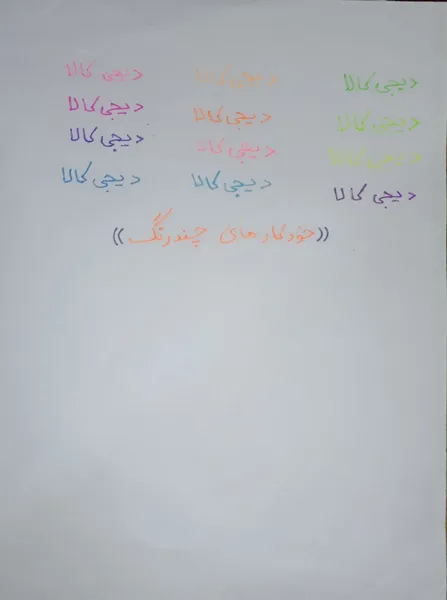 دیجی کالا دیجی کالا دیجی کالا
دیجی کالا دیجی کالا دیجی کالا
دیجی کالا دیجی کالا دیجی کالا
دیجی کالا دیجی کالا دیجی کالا
((خودکارهای چندرنگ))